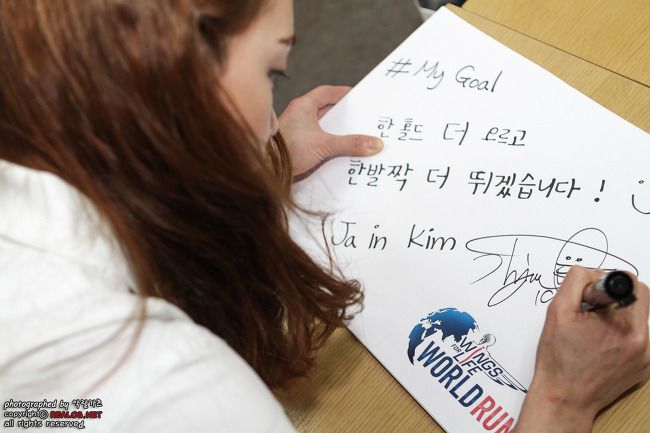 #My Goal
한홀드 더 오르고
한발짝 더 뛰겠습니다!
Ja in Kim
WINGS
FOR
LIFE
WORLD RUN
photographed by
copyright © REALOG.NET
all rights reserved.